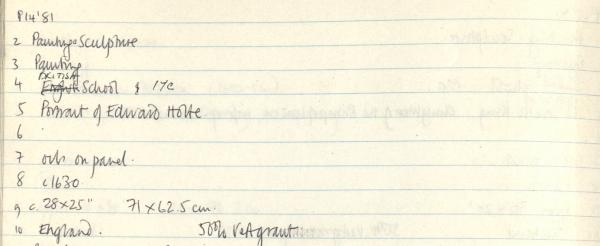 P14'81
2 Paintings Sculpture
3 Painting
BRITISH
4 English School & 17C
5 Portrait of Edward Holte
6
7 oils on panel.
8 c1630
9 c. 28x25" 71 x 62.5 cm.
10 England. 50% V&A grant